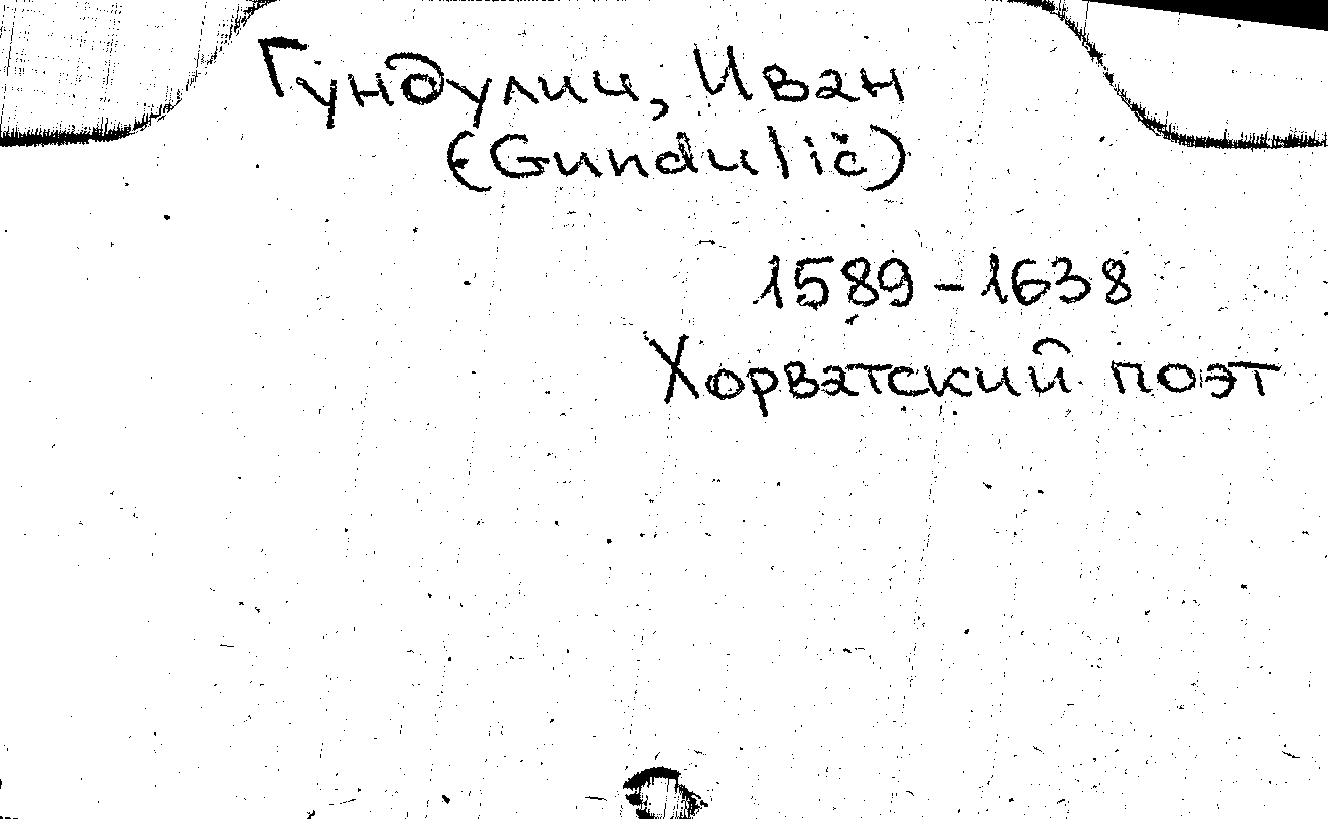 Гундулич, Иван
(Gundulič)
1589-1638
Хорватский поэт